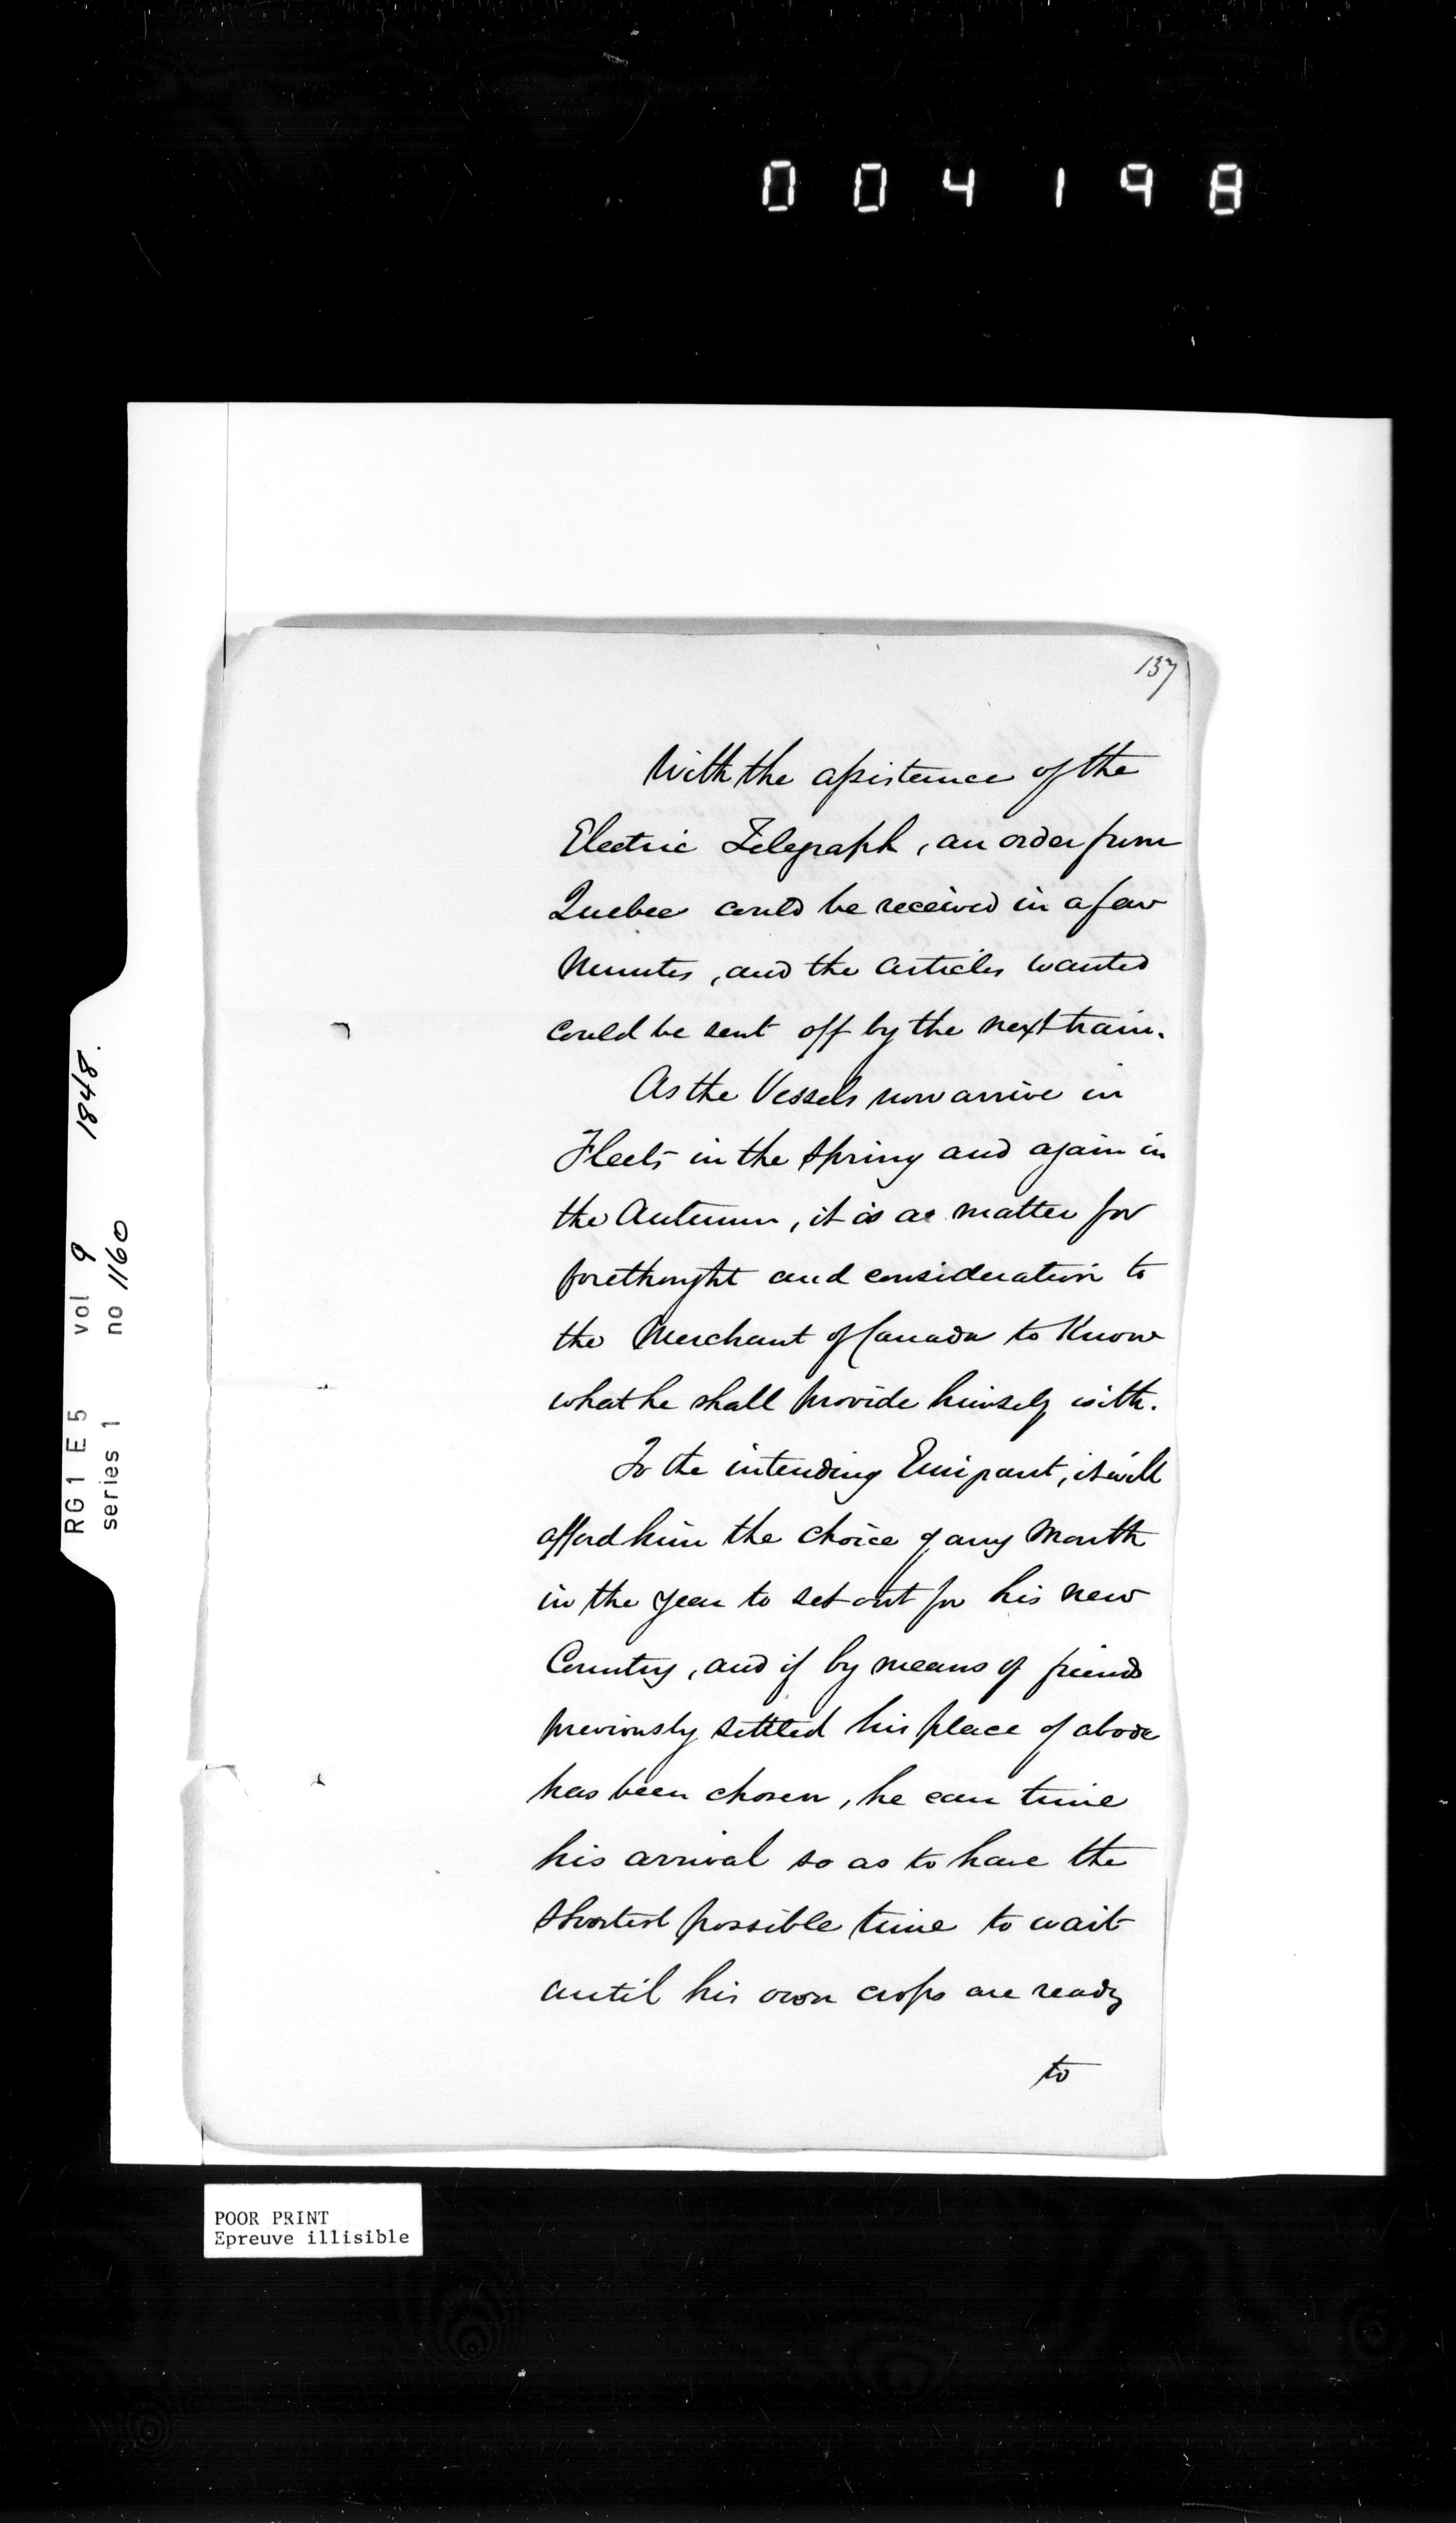 004198
137
With the assistance of the
Electric Telegraph, an order from
Quebec could be received in a few
Minutes, and the articles wanted
could be sent off by the next train.
As the Vessels now arrive in
Fleets in the Spring and again in
the Autumn, it is a matter for
forethought and consideration to
the Merchant of Canada to Know
what he shall provide himself with.
To the intending Emigrant, it will
afford him the choice of any Month
in the Year to set out for his new
Country, and if by means of friends
previously settled his place of abode
has been chosen, he can time
his arrival so as to have the
shortest possible time to wait
until his own crops are ready
to
RG1 E5 vol 9 1848.
series 1 no 1160
POOR PRINT
Epreuve illisible